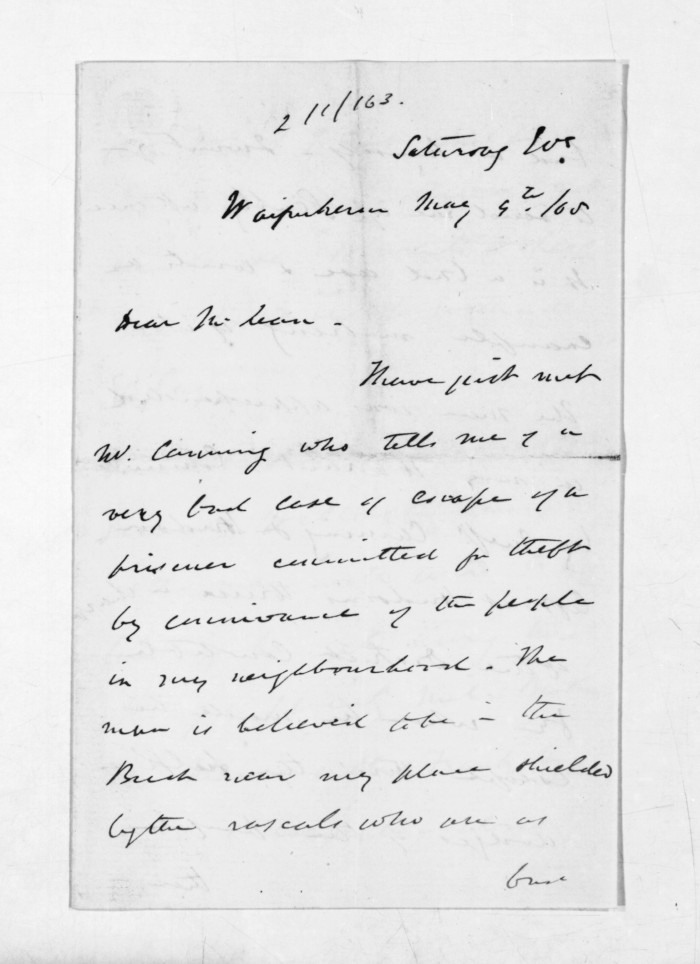 2/1/163.
Saturday Eve.
Waipukurau May 9th/65
Dear McLean -
I have just met
Mr. Canning who tells me of a
very bad case of escape of a
prisoner committed for theft
by connivance of the people
in my neighbourhood. The
man is believed to be in the
Bush near my place shielded
by the rascals who are as